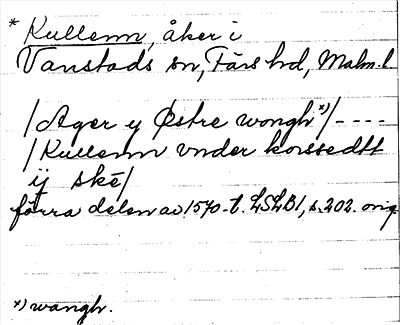 * Kullenn, åker i
Vanstads sn, Färs hd, Malm. l.
/Ager y Østre wongh *)/ - - - -
/Kullenn vnder korssedtt
ij skē/
förra delen av 1570-t. LSLB1, s. 202. orig
*) wangh.